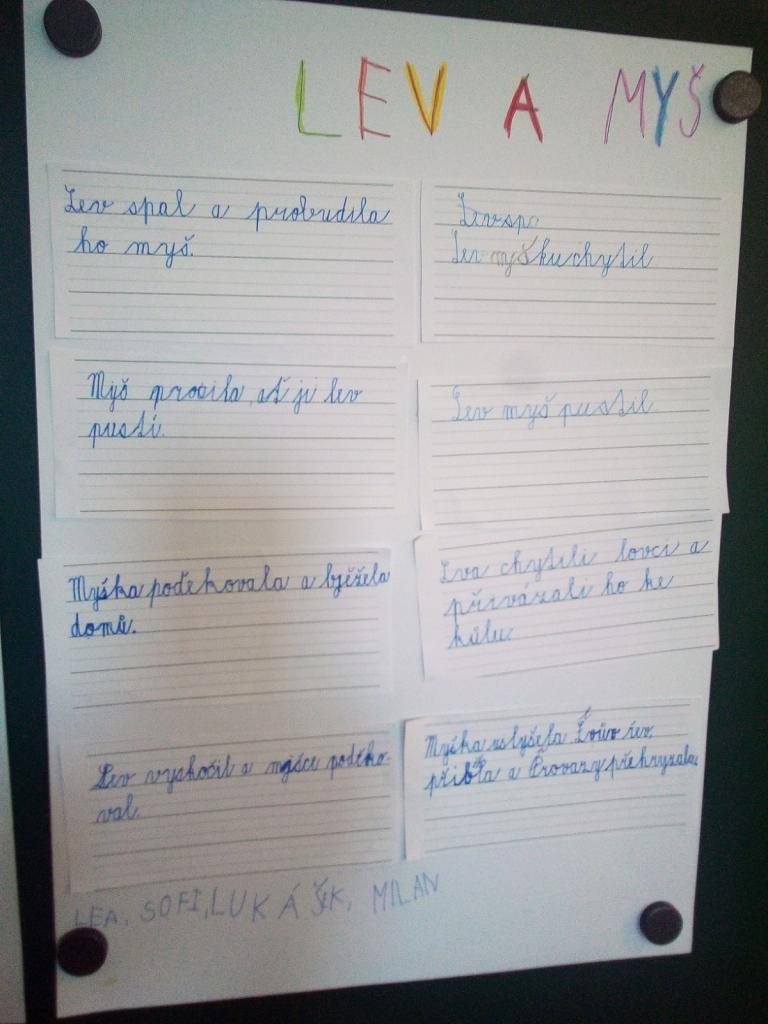 LEV A MYŠ
Lev spal a probudila
ho myš.
Lev sp
Lev myškuchytil
Myš prosila, ať ji lev
pustí.
Lev myš pustil.
Myška poďekovala a bježela
domů.
Lva chytili lovci a
přivázali ho ke
kůlu.
Myška uslyšela Lvův řev,
přiběla a Provazy překryzala.
Lev vyskočil a myšce poděko-
val.
LEA, SOFI, LUKÁŠEK, MILAN